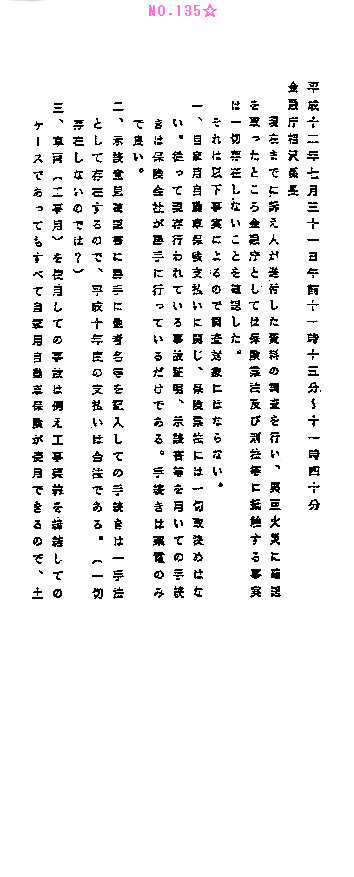 NO.135☆
平成十二年七月三十一日午前十一時十三分～十一時四十分
金融庁相沢係長
現在までに訴え人が送付した資料の調査を行い、興亜火災に確認
を取ったところ金融庁としては保険業法及び刑法等に抵触する事実
は一切存在しないことを確認した。
それは以下事実によるので調査対象にはならない。
一、自家用自動車保険支払いに関し、保険業法には一切取決めはな
い。従って現存行われている事故証明、示談書等を用いての手続
きは保険会社が勝手に行っているだけである。手続きは架電のみ
で良い。
二、示談金見確認書に勝手に他者名等を記入しての手続きは一手法
として存在するので、平成十年度の支払いは合法である。（一切
存在しないのでは？）
三、車両（工事用）を使用しての事故は例え工事契約を締結しての
ケースであってもすべて自家用自動車保険が使用できるので、土